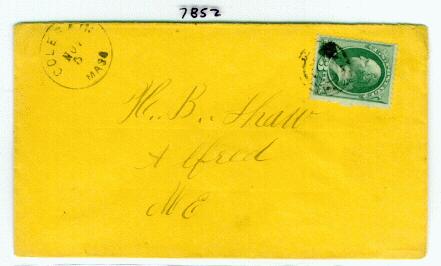 7852
COLERAIN
NOV
5
MASS
H. B. Shaw
Alfred
ME